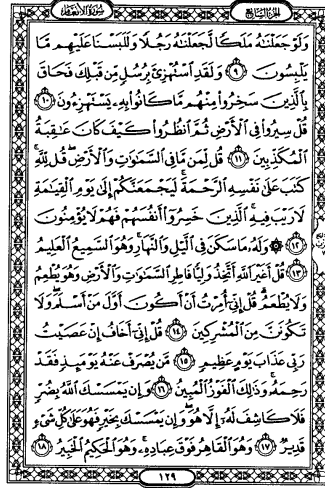 الجزء السابع
سورة الأنعام
وَلَوْ جَعَلْنَٰهُ مَلَكًا لَّجَعَلْنَٰهُ رَجُلًا وَلَلَبَسْنَا عَلَيْهِم مَّا
يَلْبِسُونَ ٩ وَلَقَدِ ٱسْتُهْزِئَ بِرُسُلٍ مِّن قَبْلِكَ فَحَاقَ
بِٱلَّذِينَ سَخِرُوا۟ مِنْهُم مَّا كَانُوا۟ بِهِۦ يَسْتَهْزِءُونَ ١٠
قُلْ سِيرُوا۟ فِى ٱلْأَرْضِ ثُمَّ ٱنظُرُوا۟ كَيْفَ كَانَ عَٰقِبَةُ
ٱلْمُكَذِّبِينَ ١١ قُل لِّمَن مَّا فِى ٱلسَّمَٰوَٰتِ وَٱلْأَرْضِ قُل لِّلَّهِ
كَتَبَ عَلَىٰ نَفْسِهِ ٱلرَّحْمَةَ لَيَجْمَعَنَّكُمْ إِلَىٰ يَوْمِ ٱلْقِيَٰمَةِ
لَا رَيْبَ فِيهِ ٱلَّذِينَ خَسِرُوٓا۟ أَنفُسَهُمْ فَهُمْ لَا يُؤْمِنُونَ
١٢ ۞ وَلَهُۥ مَا سَكَنَ فِى ٱلَّيْلِ وَٱلنَّهَارِ وَهُوَ ٱلسَّمِيعُ ٱلْعَلِيمُ
١٣ قُلْ أَغَيْرَ ٱللَّهِ أَتَّخِذُ وَلِيًّا فَاطِرِ ٱلسَّمَٰوَٰتِ وَٱلْأَرْضِ وَهُوَ يُطْعِمُ
وَلَا يُطْعَمُ قُلْ إِنِّىٓ أُمِرْتُ أَنْ أَكُونَ أَوَّلَ مَنْ أَسْلَمَ وَلَا
تَكُونَنَّ مِنَ ٱلْمُشْرِكِينَ ١٤ قُلْ إِنِّىٓ أَخَافُ إِنْ عَصَيْتُ
رَبِّى عَذَابَ يَوْمٍ عَظِيمٍ ١٥ مَّن يُصْرَفْ عَنْهُ يَوْمَئِذٍ فَقَدْ
رَحِمَهُۥ وَذَٰلِكَ ٱلْفَوْزُ ٱلْمُبِينُ ١٦ وَإِن يَمْسَسْكَ ٱللَّهُ بِضُرٍّ
فَلَا كَاشِفَ لَهُۥٓ إِلَّا هُوَ وَإِن يَمْسَسْكَ بِخَيْرٍ فَهُوَ عَلَىٰ كُلِّ شَىْءٍ
قَدِيرٌ ١٧ وَهُوَ ٱلْقَاهِرُ فَوْقَ عِبَادِهِۦ وَهُوَ ٱلْحَكِيمُ ٱلْخَبِيرُ ١٨
١٢٩